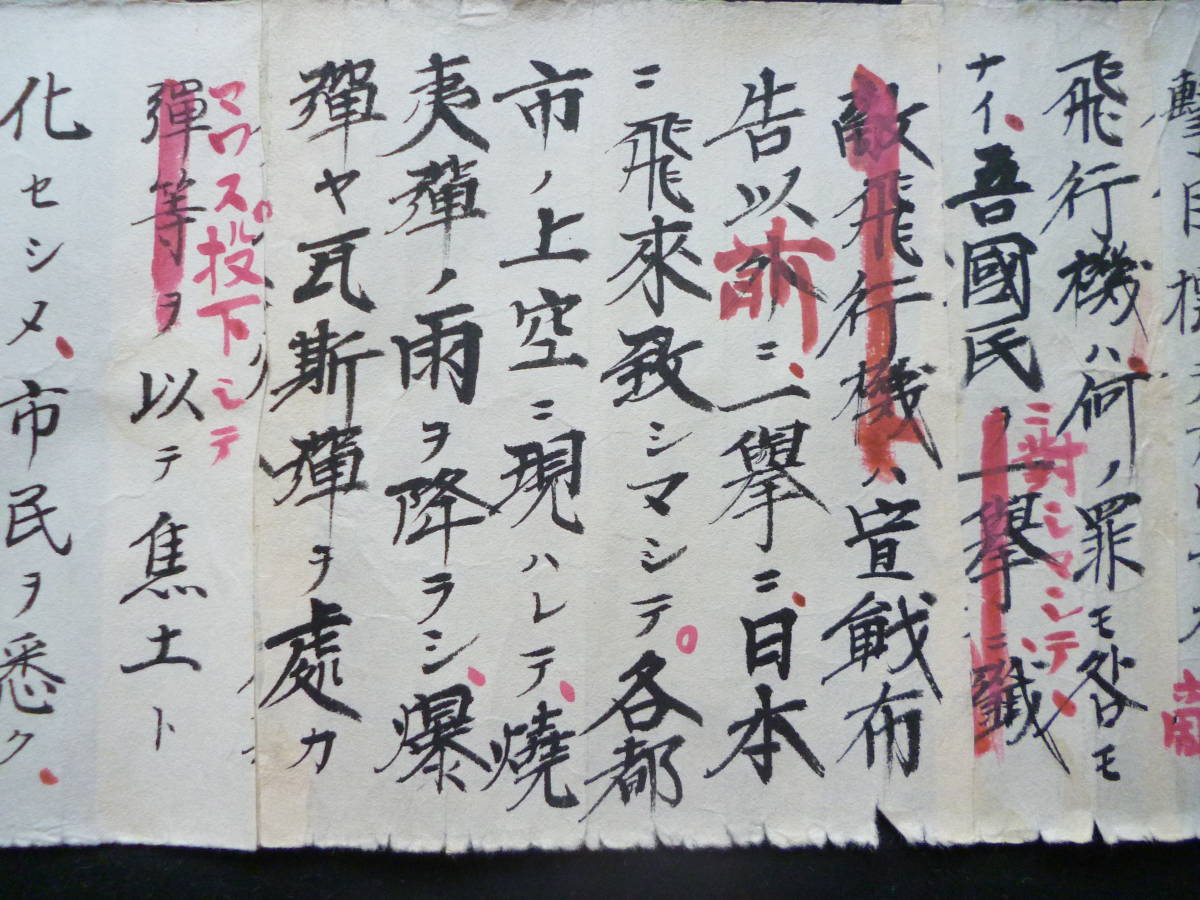 飛行機ハ何ノ罪モ咎モ
ナイ、吾國民ノ一擧ニ殲
ニ對シマシテ、
敵飛行機ハ宣戰布
告以外ニ、一擧ニ、日本
前
ニ飛來致シマシテ。各都
市ノ上空ニ現ハレテ、燒
夷彈ノ雨ヲ降ラシ、爆
彈ヤ瓦斯彈ヲ處カ
マワズ投下シテ
彈等ヲ以テ焦土ト
化セシメ、市民ヲ悉ク、